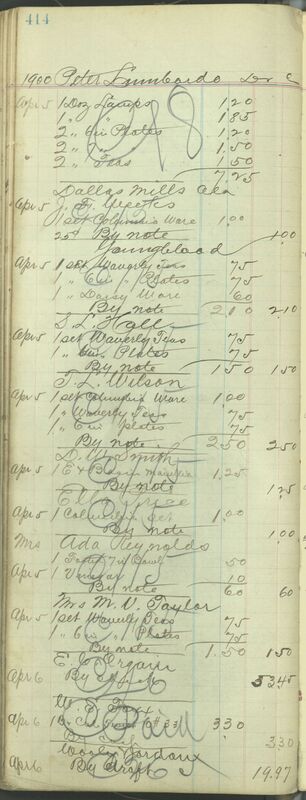 414
1900 Peter Lumbardo Dr C
Apr 5 1 Doz Lamps 1,20
1 " " 1,85
2 " 6in Plates 1,20
2 " 7 " 1,50
2 " Teas 1,50
7,25
Dallas Mills
Apr 5 J. F. Weetes
1 set Columbia Ware 1,00
25¢ By note 1,00
Youngblood
Apr 5 1 set Waverly Teas 75
1 " 6in " Plates 75
1 " Daisy Ware 60
By note 2 10 2,10
S. L. Hall
Apr 5 1 set Waverly Teas 75
1 " 6in Plates 75
By note 1 50 1 50
T. L. Wilson
Apr 5 1 set Columbia Ware 1,00
1 " Waverly Teas 75
1 " 6in plates 75
By note 2,50 2 50
D. W. Smith
Apr 5 1 E & Basin 1,25
By note 1,25
Ella
Apr 5 1 Columbia Set 1,00
By note 1,00
Mrs Ada Reynolds
Apr 5 1 7in Bowl 50
1 Vinegar 10
By note 60 60
Mrs M. V. Taylor
Apr 5 1 Set Waverly Teas 75
1 " 6in " Plates 75
By note 1.50 1 50
E. C. Orgain
Apr 6 By 5 3 45
W. S.
Apr 6 1 3 30
By 3 30
Paid
Apr 6 By Draft 19.97